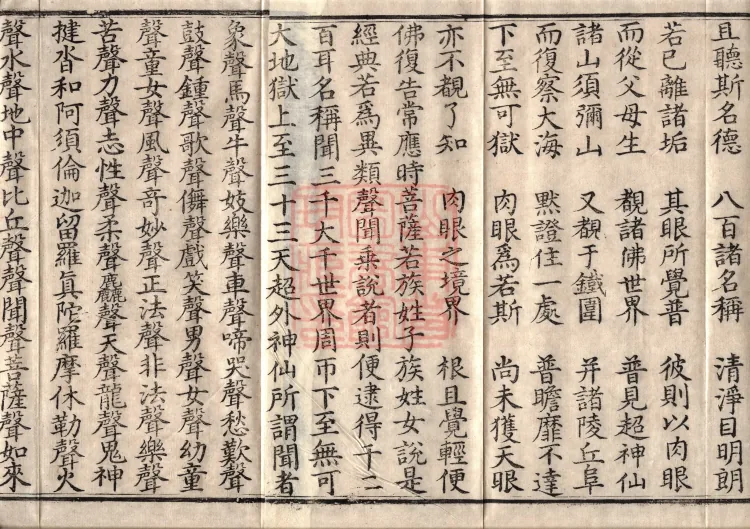 且聽斯名德 八百諸名稱 清淨目明朗
若已離諸垢 其眼所覺普 彼則以肉眼
而從父母生 覩諸佛世界 普見超神仙
諸山須彌山 又覩于鐵圍 并諸陵丘阜
而復察大海 默證住一處 普瞻靡不達
下至無可獄 肉眼為若斯 尚未獲天眼
亦不覩了知 肉眼之境界 根且覺輕便
佛復告常應時菩薩若族姓子族姓女說是
經典若為異類聲聞乘說者則便逮得千二
百耳名稱聞三千大千世界周帀下至無可
大地獄上至三十三天超外神仙所謂聞者
象聲馬聲牛聲妓樂聲車聲啼哭聲愁歎聲
鼓聲鍾聲歌聲儛聲戲笑聲男聲女聲幼童
聲童女聲風聲奇妙聲正法聲非法聲樂聲
苦聲力聲志性聲柔聲麤聲天聲龍聲鬼神
揵沓和阿須倫迦留羅真陀羅摩休勒聲火
聲水聲地中聲比丘聲聲聞聲菩薩聲如來